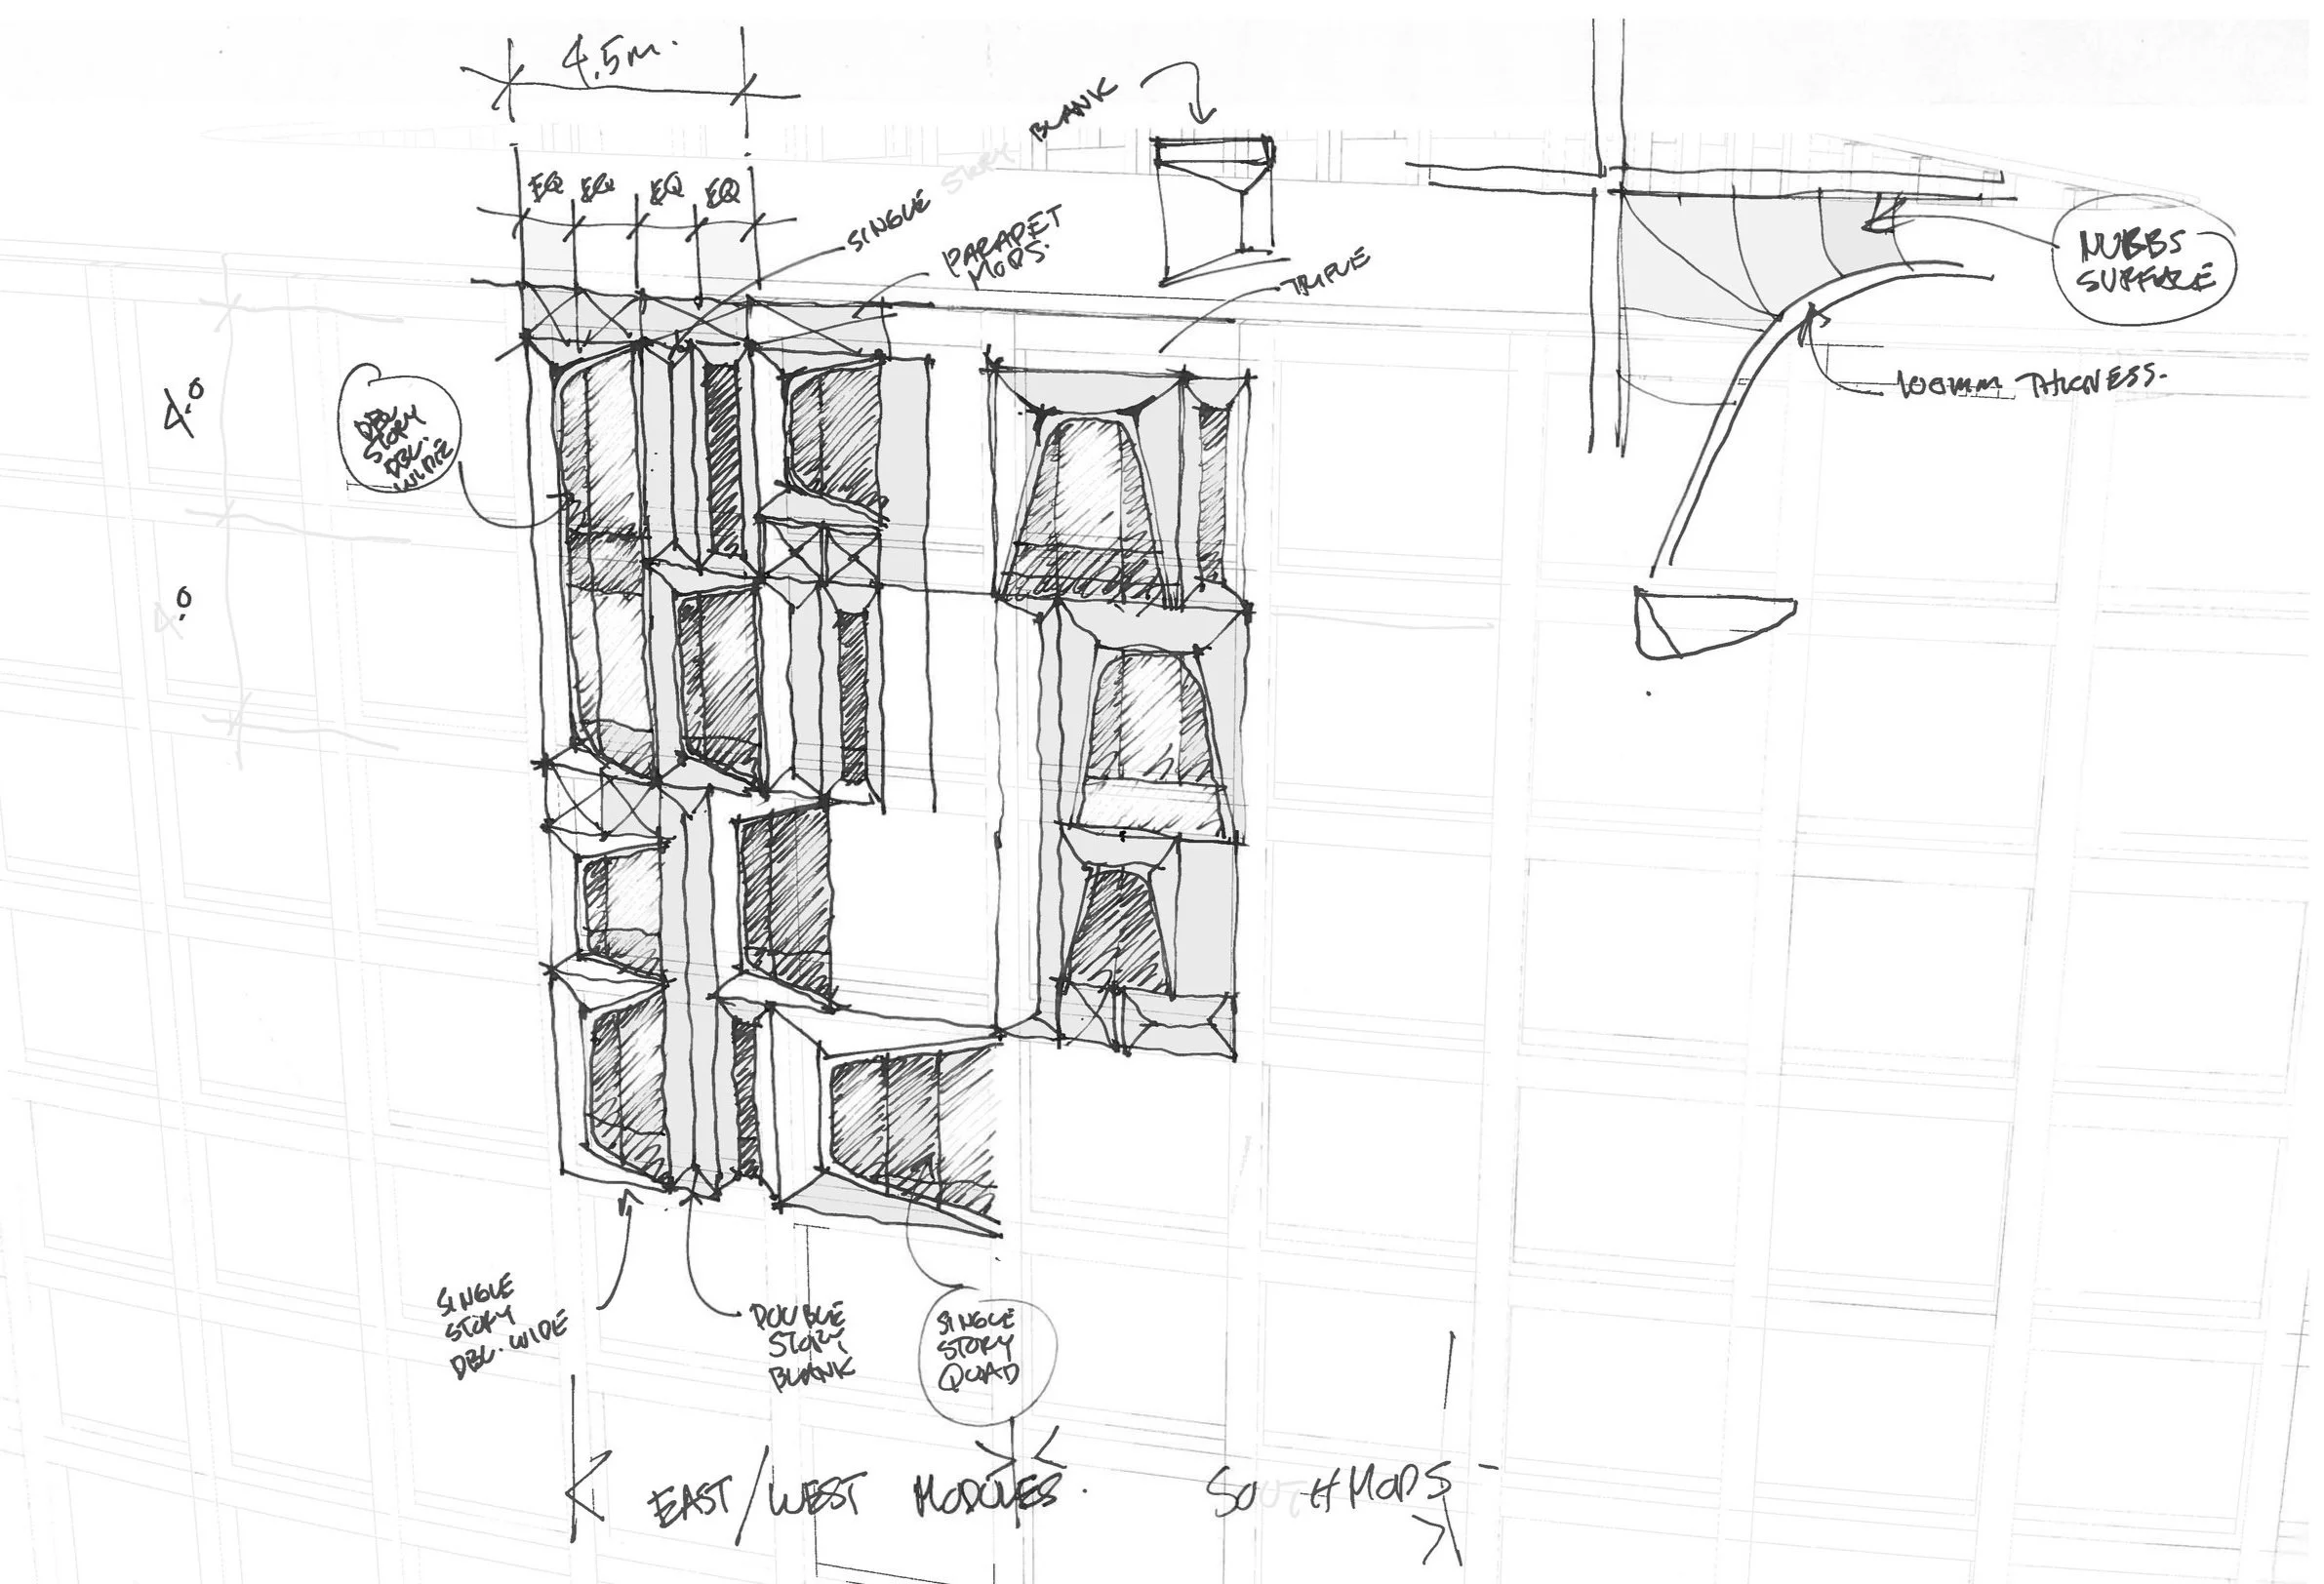 4.5m.
BLANK
EQ EQ EQ EQ
SINGLE
PARAPET
MODS.
TRIPLE
NUBBS
SURFACE
100mm THICKNESS.
4.0
DBL
STORY
DBL.
WIDE
4.0
SINGLE
STORY
DBL. WIDE
DOUBLE
STORY
BLANK
SINGLE
STORY
QUAD
EAST/WEST MODULES.
SOUTH MODS